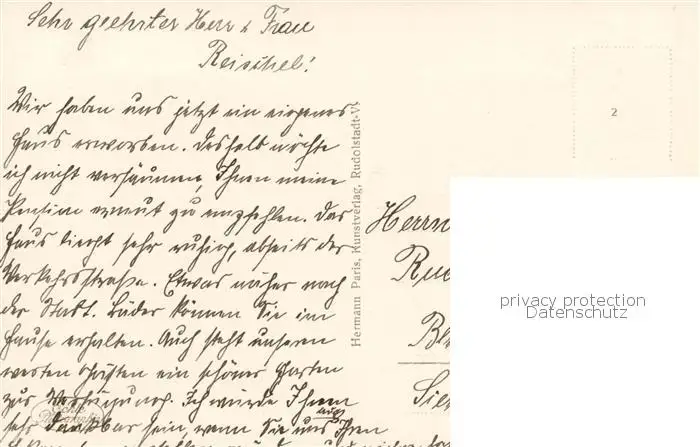 Sehr geehrter Herr u. Frau
Reischel!
Wir haben uns jetzt ein eigenes
Haus erworben. Deshalb möchte
ich nicht versäumen, Ihnen meine
Pension erneut zu empfehlen. Das
Haus liegt sehr ruhig, abseits der
Verkehrsstraße. Etwas näher nach
der Stadt. Bäder können Sie im
Hause erhalten. Auch steht unseren
werten Gästen ein schöner Garten
zur Verfügung. Ich würde Ihnen
sehr dankbar sein, wenn Sie uns auch Ihren
Hermann Paris, Kunstverlag, Rudolstadt-V.
2
Herrn
privacy protection
Datenschutz